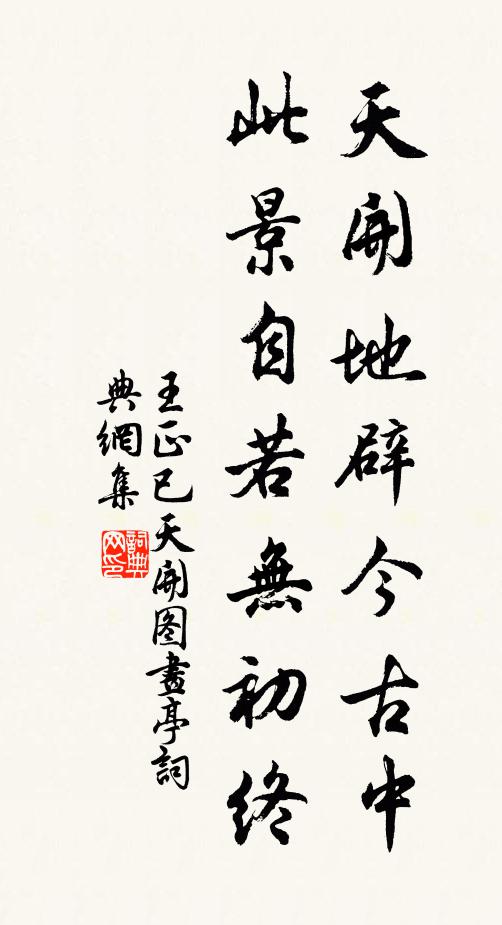 天開地辟今古中
此景自若無初終
王正已天開图畫亭詞
典網集
詞典
网印